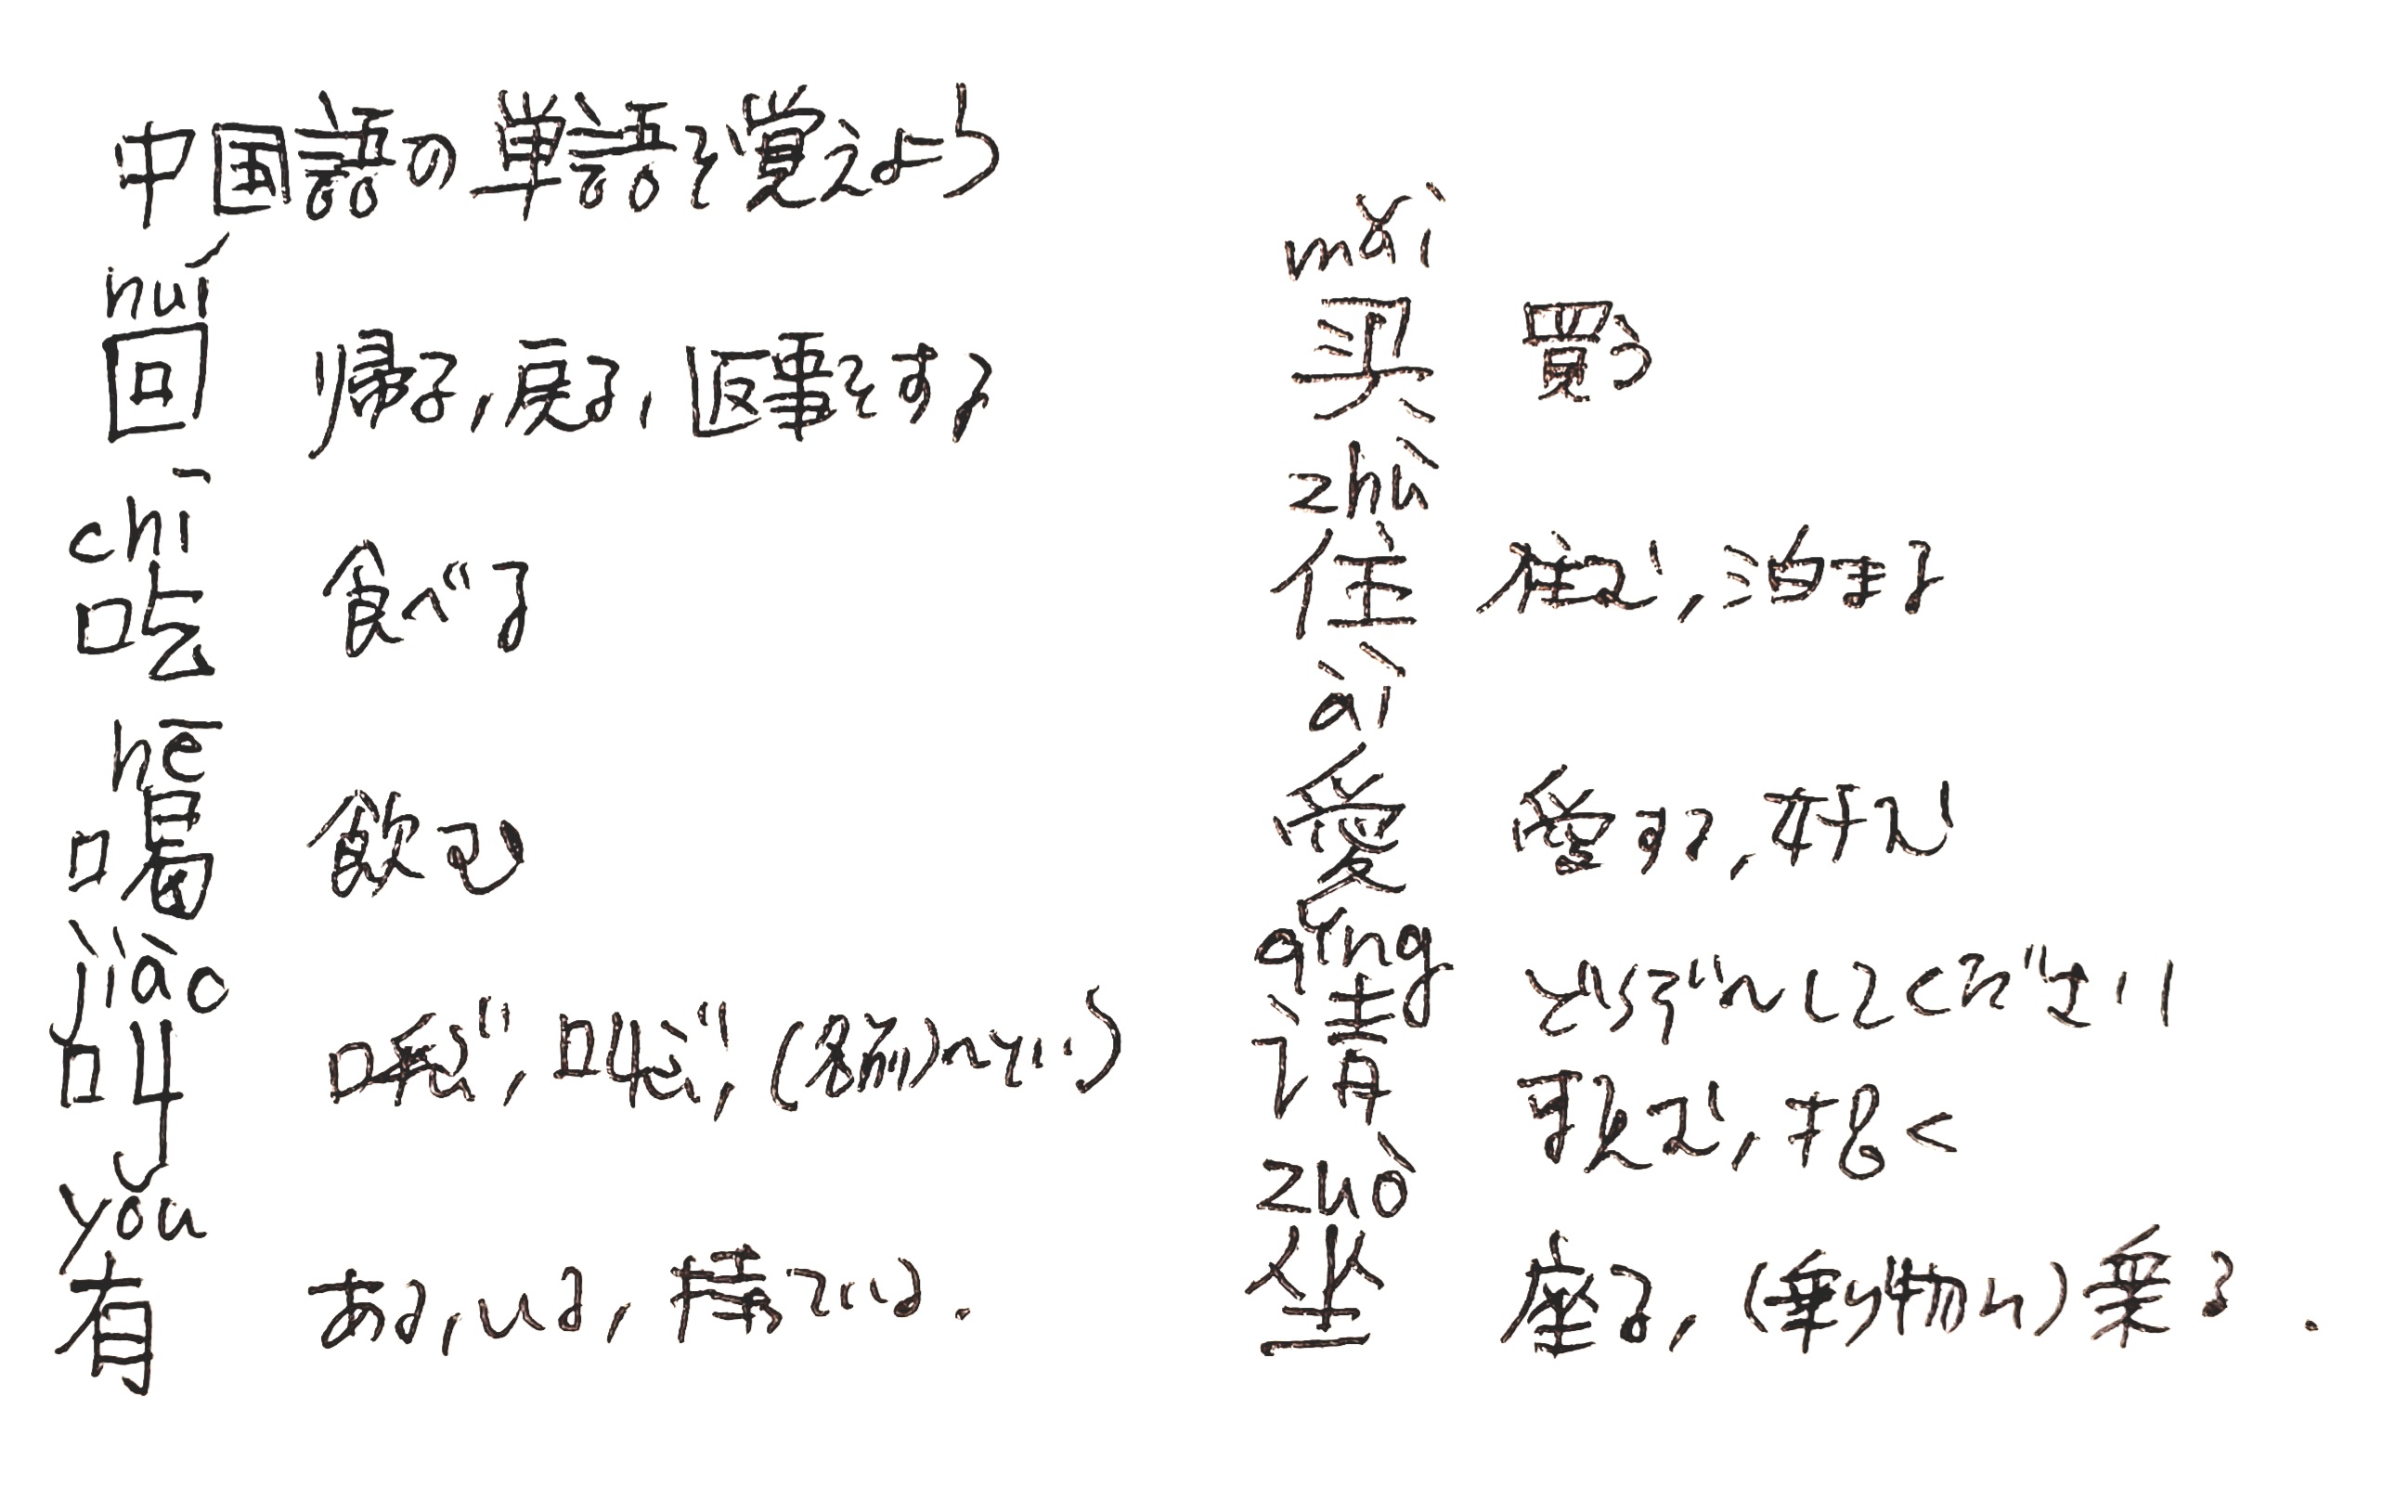 中国語の単語を覚えよう
huí
回 帰る,戻る,返事をする
chī
吃 食べる
hē
喝 飲む
jiào
叫 呼ぶ,叫ぶ,(名前)
yǒu
有 ある,いる,持っている.
mǎi
买 買う
zhù
住 住む,泊まる
ài
愛 愛する,好む
qǐng
请 どうぞ〜してください
歌む,招く
zuò
坐 座る,(乗り物に)乗る.